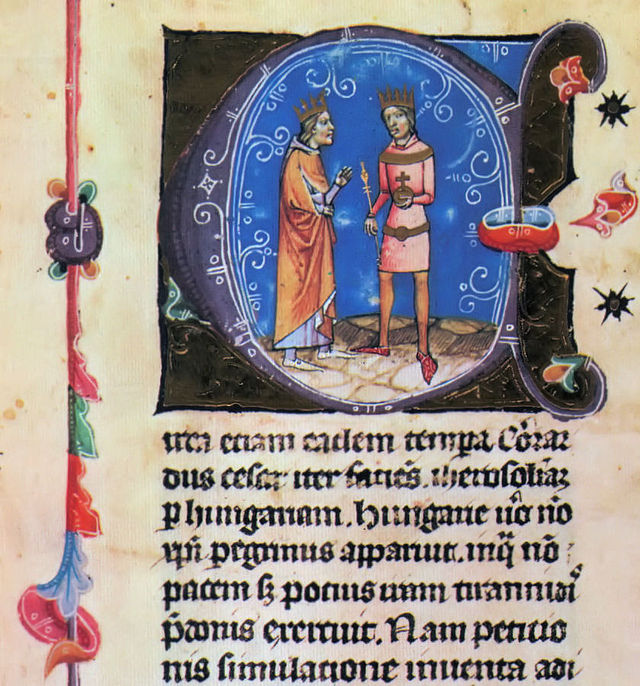 Circa etiam eadem tempa. Cōrar
dus cesar iter faciēs. iherosolimā
p hungariam. Hungarie uō nō
xpi pegrinus apparuit. in q̄ nō
pacem sꝫ potius iram tirannidi
p̄donis exercuit. Nam petitio
nis simulatione inuenta adi